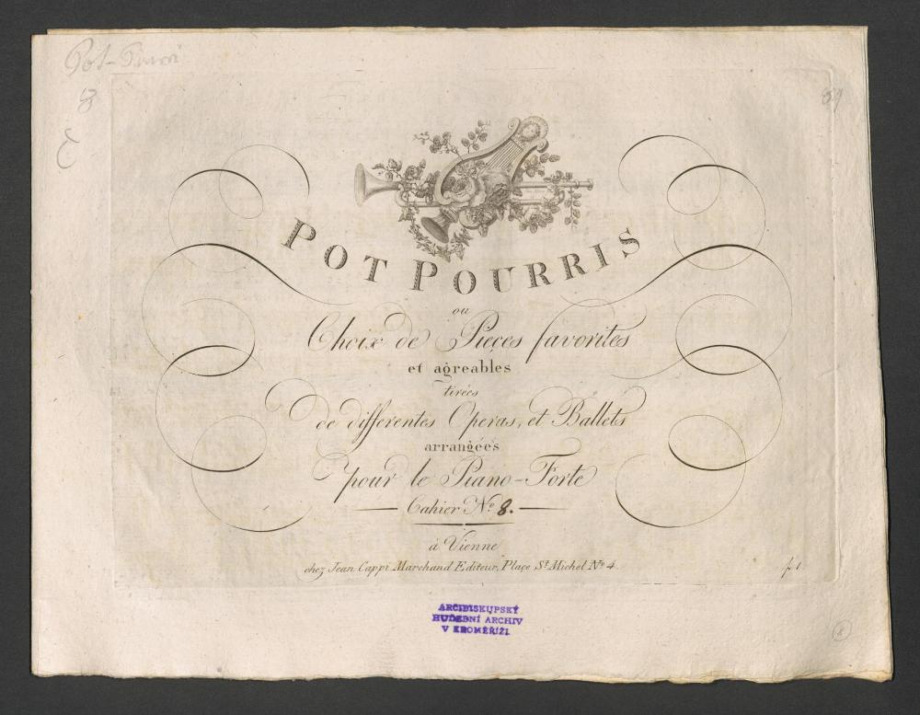 Pot-Pourri
8
POT POURRIS
ou
Choix de Pieçes favorites
et agreables
tirées
de differentes Operas, et Ballets
arrangées
pour le Piano-Forte
Cahier No 8.
à Vienne
chez Jean Cappi Marchand Editeur, Plaçe St Michel No 4.
ARCIBISKUPSKÝ
HUDEBNÍ ARCHIV
V KROMĚŘÍŽI